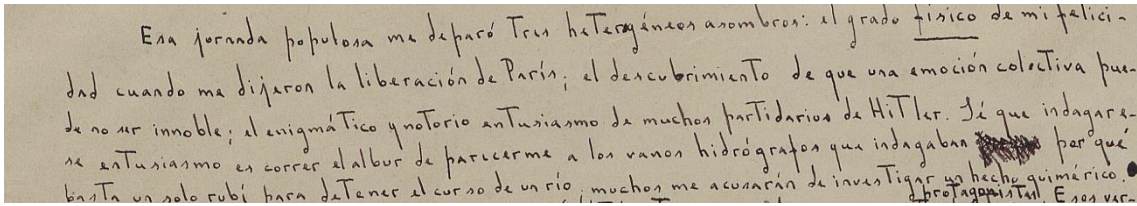 Esa jornada populosa me deparó tres heterogéneos asombros: el grado físico de mi felici-
dad cuando me dijeron la liberación de París; el descubrimiento de que una emoción colectiva pue-
de no ser innoble; el enigmático y notorio entusiasmo de muchos partidarios de Hitler. Sé que indagar e-
se entusiasmo es correr el albur de parecerme a los vanos hidrógrafos que indagaban por qué
basta un solo rubí para detener el curso de un río; muchos me acusarán de investigar un hecho quimérico.
protagonistas. Esos ver-